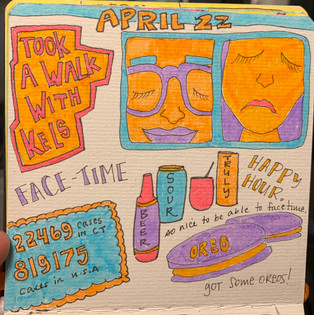 APRIL 22
TOOK
A WALK
WITH
KELS
FACE-TIME
BEER
SOUR
TRULY
HAPPY
HOUR.
so nice to be able to facetime.
22469 cases
in CT
819175
cases in U.S.A
OREO
got some OREOS!